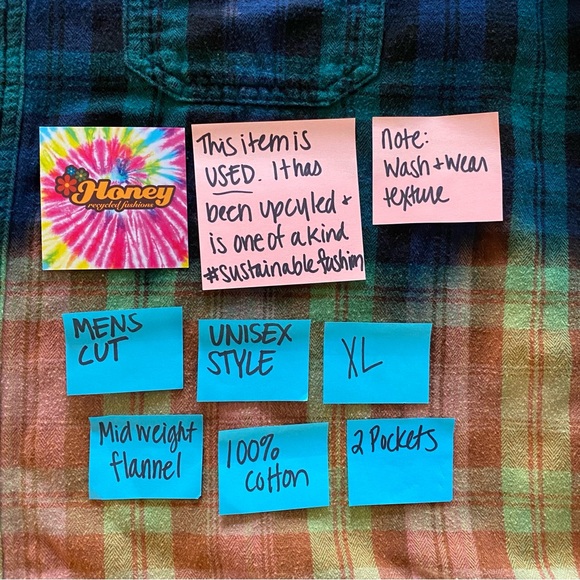 Honey
recycled fashions
This item is
USED. It has
been upcyled +
is one of a kind
#sustainablefashion
note:
Wash + Wear
texture
MENS
CUT
UNISEX
STYLE
XL
Mid weight
flannel
100%
cotton
2 Pockets